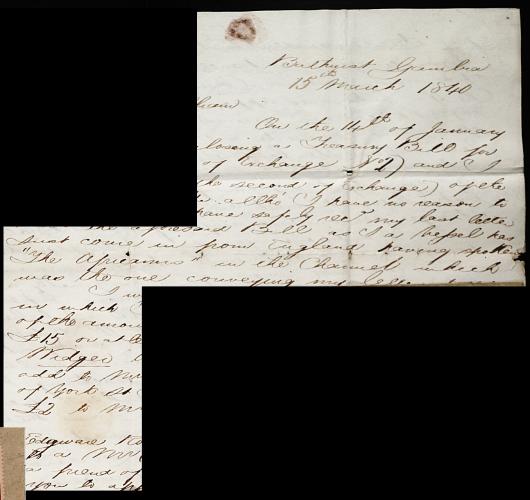 Bathurst Gambia
15th March 1840
On the 14th of January
closing a Treasury Bill for
of Exchange No 1) and I
the second of Exchange) of the
altho' I have no reason to
have safely recd my last letter
the aforesaid Bill as a vessel has
just come in from England having spoken
"The Africanus" in the Channel which
was the one conveying my letter
I
in which
of the amou
£15 on
Widger
add to Mr
of York St
£2 to Mr
Edgware Ro
to a Mr
a friend of
you to